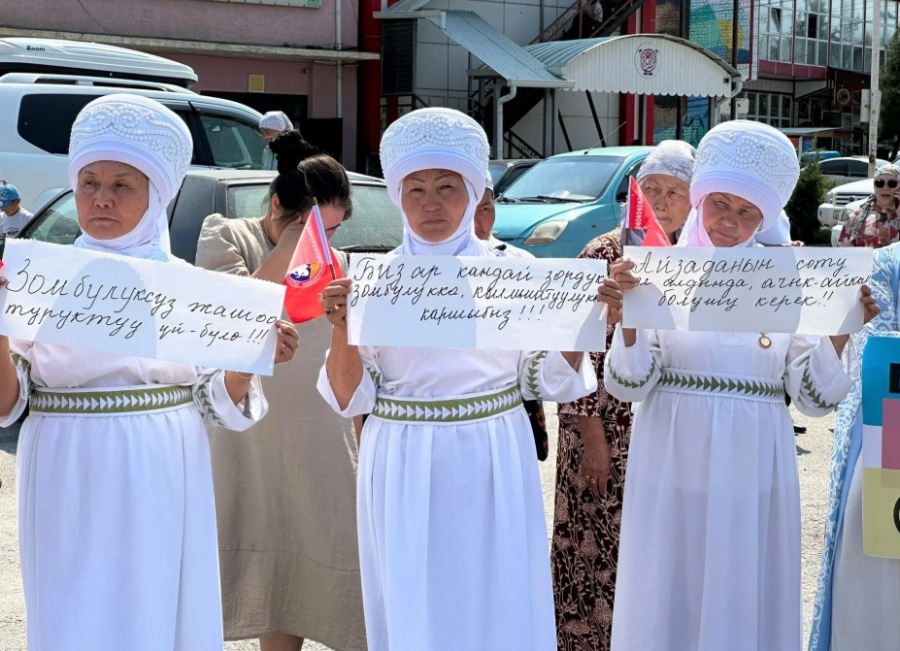 Zoom
Зомбулуксуз жашоо
туруктуу үй-бүлө !!!
Биз ар кандай зордук
зомбулукка, кылмыштуулукка
каршыбыз !!!
Айзаданын соту
алдында, ачык-айкын
болушу керек!!